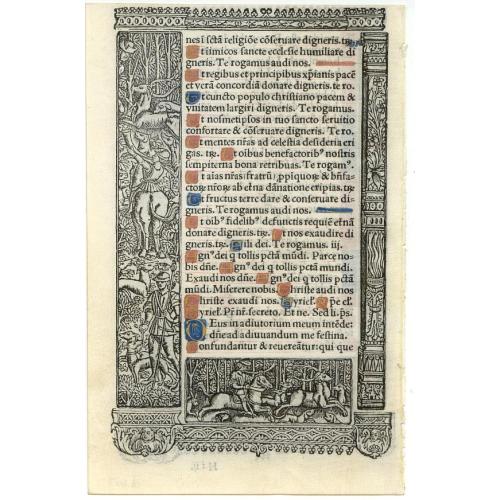 nes i sctã religiõe cõseruare digneris. trg
t iimicos sancte ecclesie humiliare di
gneris. Te rogamus audi nos.
t regibus et principibus xp̃ianis pacẽ
et verã concordiã donare digneris. te ro.
t cuncto populo christiano pacem &
vnitatem largiri digneris. Te rogamus.
t nosmetipsos in tuo sancto seruitio
confortare & cõseruare digneris. Te ro.
t mentes nr̃as ad celestia desideria eri
gas. t oibus benefactoribꝰ nostris
sempiterna bona retribuas. Te rogamꝰ.
t aĩas nr̃as fratrũ ꝓpiquoꝝ & bñfa
ctoꝝ nr̃oꝝ ab etna dãnatione eripias.
t fructus terre dare & conseruare di-
gneris. Te rogamus audi nos.
t oibꝰ fidelibꝰ defunctis requiẽ etnã
donare digneris. t nos exaudire di
gneris. ili dei. Te rogamus. iij.
gnꝰ dei q tollis pctã mũdi. Parce no-
bis dñe. gnꝰ dei q tollis pctã mundi.
Exaudi nos dñe. gnꝰ dei q tollis pctã
mũdi. Miserere nobis. hriste audi nos
hriste exaudi nos. yriel. pe el.
yriel. Pr̃ nr̃. secreto. Et ne. Sed li. ps.
Eus in adiutorium meum intẽde:
dñe ad adiuuandum me festina.
onfundantur & reuereãtur: qui que